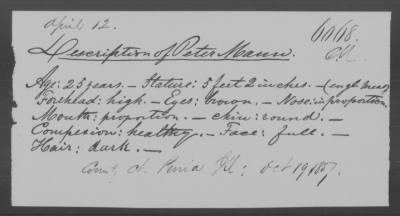 April 12.
Description of Peter Mann.
Age: 25 years. – Stature: 5 feet 2 inches. – (engl. meas)
Forehead: high. – Eyes: brown. – Nose: in proportion.
Mouth: proportion. – chin: round. –
Compexion: healthy. – Face: full. –
Hair: dark. –
Oct 19 1857.